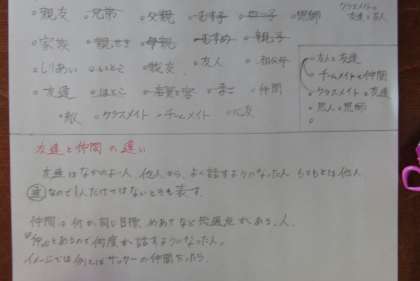 クラスメイトと
友達と友人
親友 兄弟 父親 むす子 恩師
家族 親せき 母親 むすめ 親子
しりあい いとこ 友人 祖父母
友達 はとこ 仲間
クラスメイト チームメイト
友人と友達
チームメイトと仲間
クラスメイトと友達
恩人と恩師
友達と仲間の違い
友達はなかのよい人、他人から、よく話するようになった人 もともとは他人
達なので1人だけではないときも表す。
仲間は何か同じ目標、めあてなど共通点がある人。
何度か話するようになった人。
イメージでは例えばサッカーの仲間だったら、